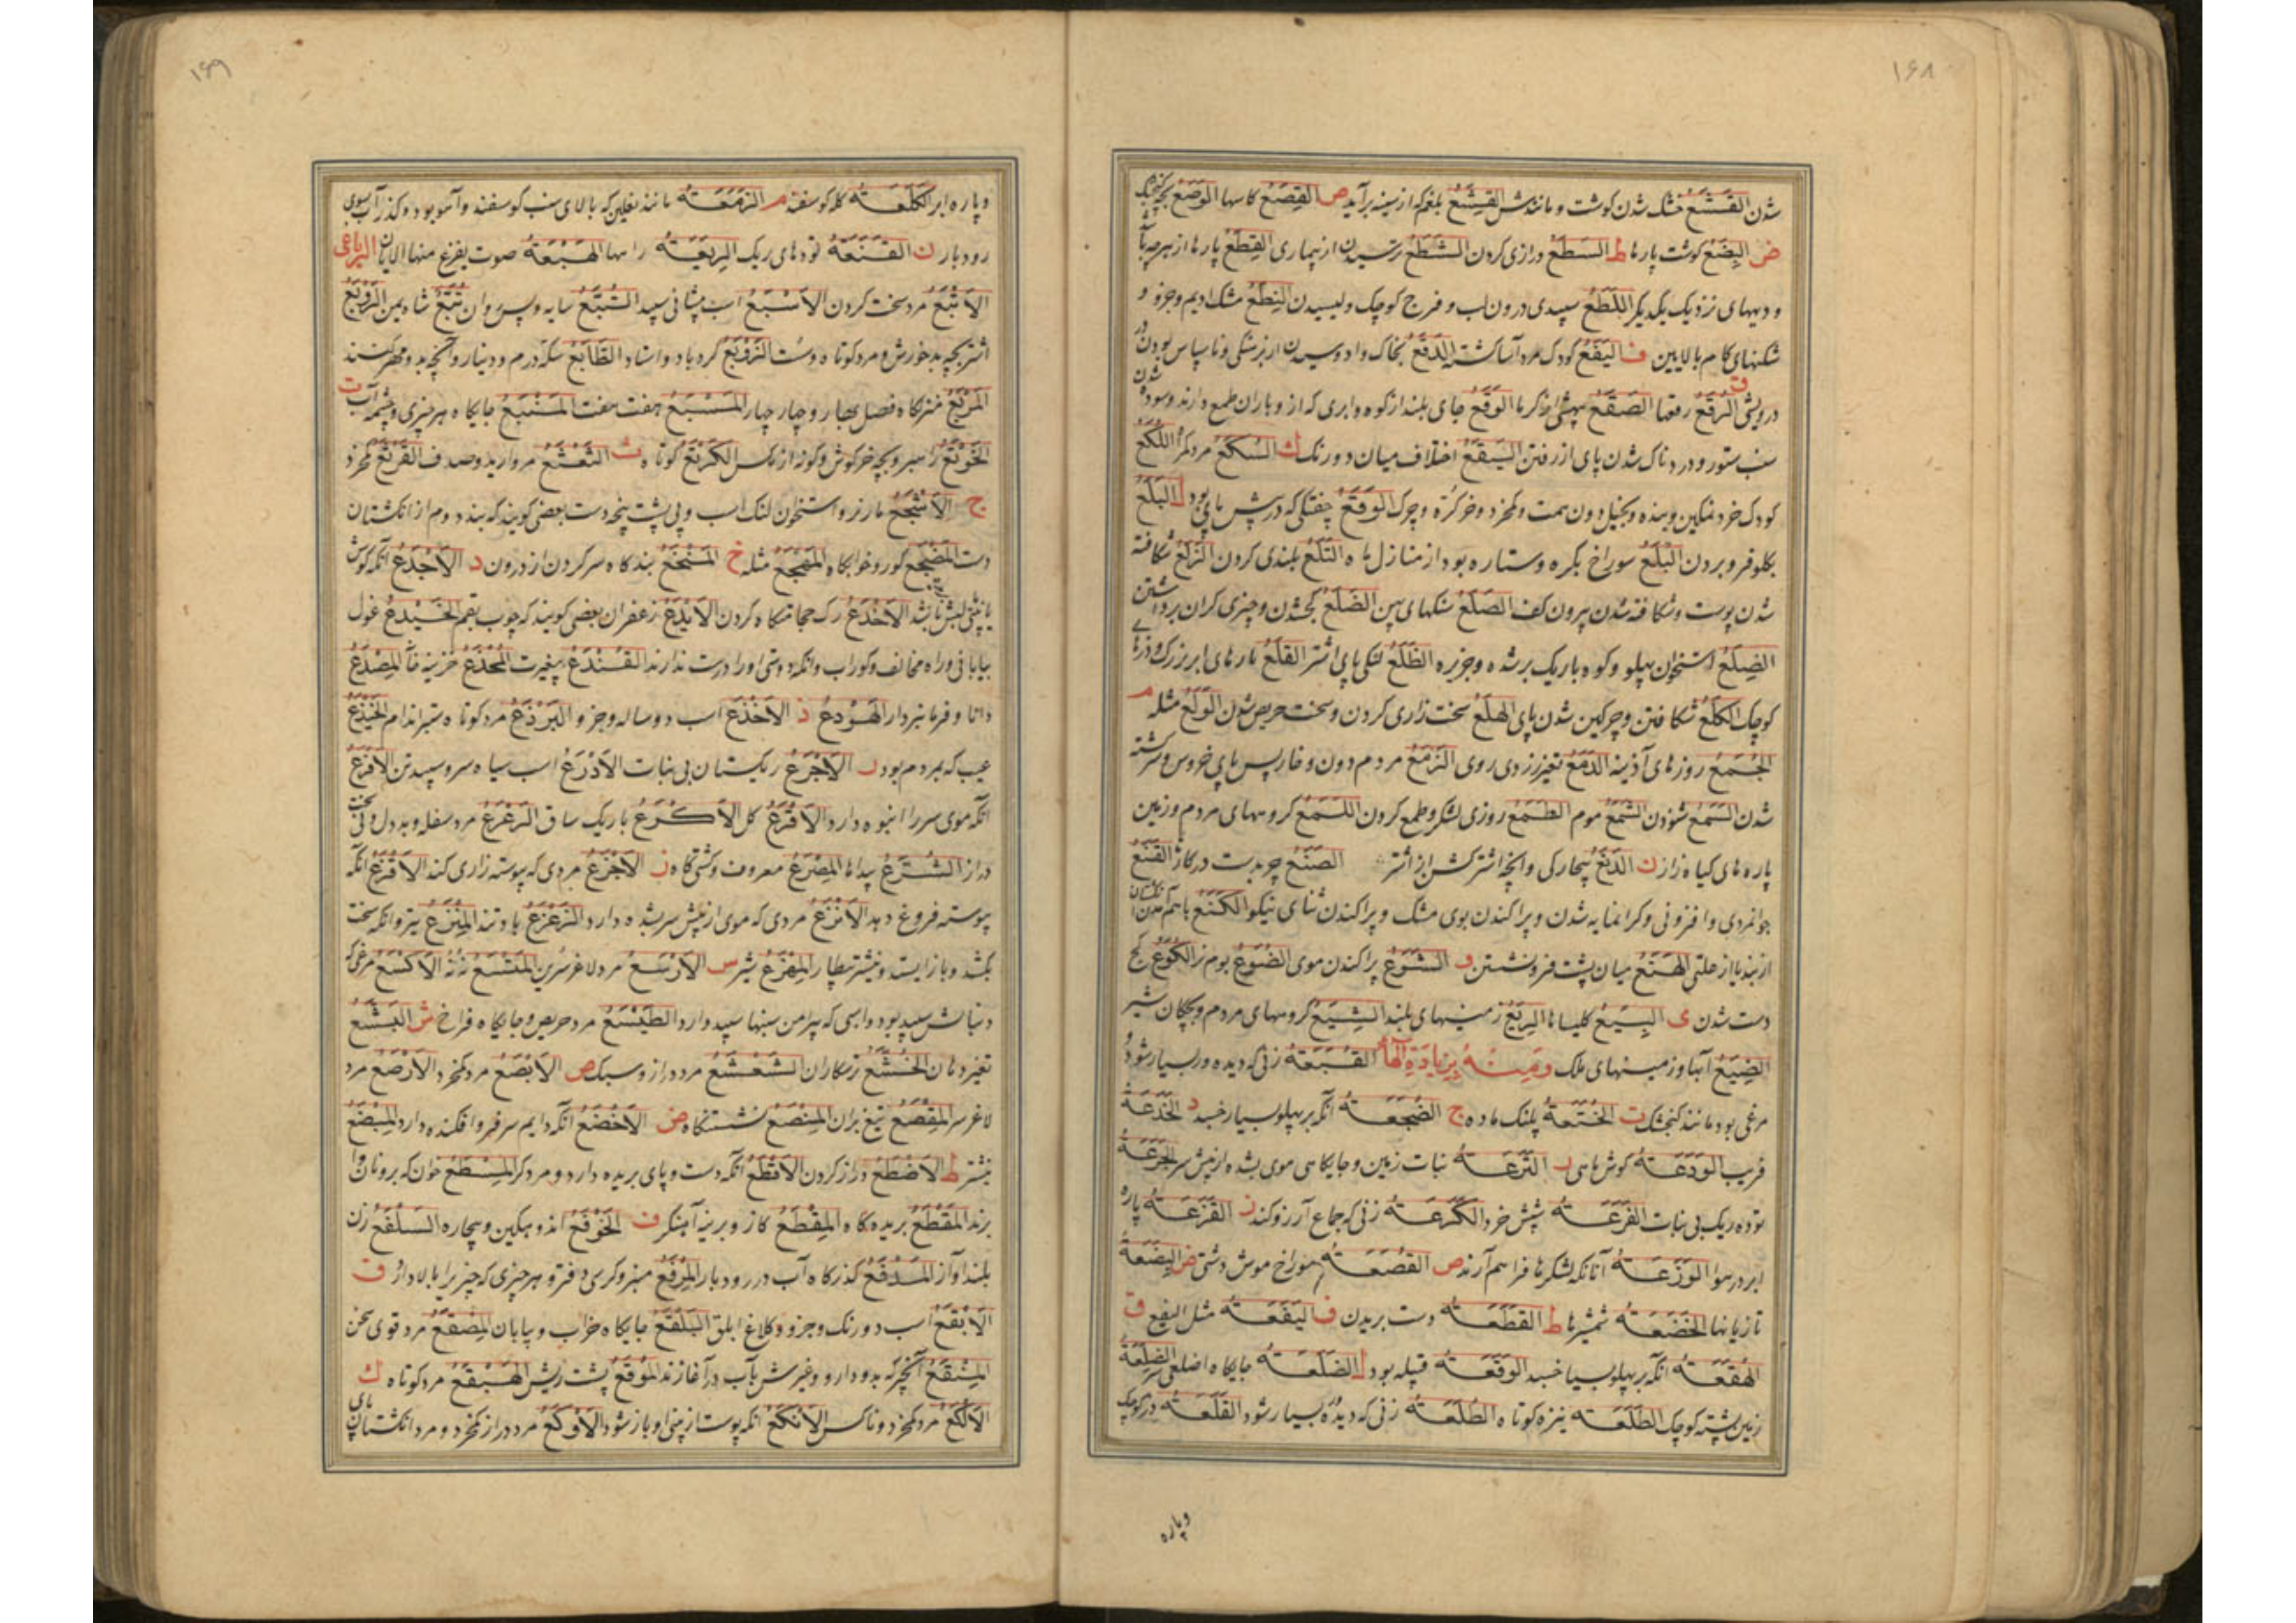 ۱۶۸
شدن القَشَعُ خشک شدن کوشت و مانندش القِشَعُ بلغم که از سینه برآید ص القِصَعُ کاسها الوَصَعُ بچه کنجشک
ض البِضَعُ کوشت پارها ط السَطَعُ درازی کردن الشَطَعُ ترسیدن از بیماری القِطَعُ پارها از هر چه باشد
و دیههای نزدیک یکدیگر اللَطَعُ سپیدی درون لب و فرج کوچک و لیسیدن النِطَعُ مشک ادیم وجزو و
شکنهای کام بالایین ف الیَفَعُ کودک مرد آسا کشته الدَقَعُ بخاک وادوسیدن از برشکی و ناسپاس بودن در
درویشی الرُقَعُ رقعها الصَقَعُ الوَقَعُ جای بلند از کوه و ابری که از و باران طمع دارند و سوده شدن
سنب ستور و دردناک شدن پای از رفتن البَقَعُ اختلاف میان دو رنک ك السُکَعُ مرد کمراه اللُکَعُ
کودک خرد نمکین و بنده و بخیل دون همت و کمخرد و خر کره و چرک الوَقَعُ خفتکی که در پش پای بود ل البَلَعُ
بکلو فرو بردن البُلَعُ سوراخ بکره و ستاره بود از منازل ماه التَلَعُ بلندی کردن الزَلَعُ شکافته
شدن پوست و شکافته شدن بیرون کف الصَلَعُ سنکهای پهن الضَلَعُ کج شدن و چیزی کران برداشتن
الضِلَعُ استخوان پهلو و کوه باریک برشده و جزیره الظَلَعُ لنکی پای اشتر القَلَعُ پارهای ابر بزرک و درهای
کوچک الکَلَعُ شکافتن و چرکین شدن پای الهَلَعُ سخت زاری کردن و سخت حریص شدن الوَلَعُ مثله م
الجُمَعُ روزهای آذینه الدَمَعُ تغیر زردی روی الزَمَعُ مردم دون و خار پس پای خروس و سرکشته
شدن السَمَعُ شنودن الشَمَعُ موم الطَمَعُ روزی لشکر و طمع کردن اللُمَعُ کروههای مردم و زمین
پاره های کیاه زار ن الدَنَعُ بیچارکی و آنچه اشتر کش از اشتر الصَنَعُ چربدست در کار القَنَعُ
جوانمردی و افزونی و کرانمایه شدن و پراکندن بوی مشک و پراکندن ثنای نیکو الکَنَعُ باهم آمدن انکشتان
از بند یا از علتی الهَنَعُ میان پشت فرو نشستن و الشَوَعُ پراکندن موی الضُوَعُ بوم نر الکَوَعُ کج
دست شدن ی البِیَعُ کلیساها الرِیَعُ زمینهای بلند الشِیَعُ کروههای مردم و بچکان شیر
الضِیَعُ آبها و زمینهای ملک وَمِنهُ بِزیادَةِ الهاءُ القُبَعَة زنی که دیده ور بسیار شود و
مرغی بود مانند کنجشک ت الخُتَعَة پلنک ماده ج الضُجَعَة آنکه بر پهلو بسیار خسبد د الخُدَعَة
فریب الوَدَعَة کوش ماهی ر التَرَعَة نبات زمین و جایکاهی موی بشده از پیش سر الجَرَعَة
توده ریک بی نبات الفَرَعَة شپش خرد الکَرَعَة زنی که جماع آرزو کند ز القَزَعَة پاره
ابر در هوا الوَزَعَة آنانکه لشکرها فراهم آرند ص القُصَعَة سوراخ موش دشتی ض البَضَعَة
تازیانها الخَضَعَة شمشیرها ط القَطَعَة دست بریدن ف الیَفَعَة مثل الیفع ق
الهُقَعَة آنکه بر پهلو بسیا خسبد الوَقَعَة قبیله بود ل الصَلَعَة جایکاه اصلعی سر الضِلَعَة
زمین پشته کوچک الطَلَعَة نیزه کوتاه الطُلَعَة زنی که دیده بسیار شود القَلَعَة در کوچک
وپاره
۱۶۹
وپاره ابر الکَلَعَة کله کوسفند م الزَمَعَة مانند نعلین که بالای سنب کوسفند و آهو بود و کذر آب سوی
رودبار ن القَنَعَة تودهای ریک الرِیَعَة راهها الهَبَعَة صوت یفزع منها الابان الرباعی
الاَتبَعُ مرد سخت کردن الاَسبَعُ اسب پیشانی سپید التُبَّعُ سایه و پس روان تُبَّعُ شاه یمن الرَوبَعُ
اشتر بچه بدخورش و مرد کوتاه و سست الزَوبَعُ کردباد و استاد الطابَعُ سکه درم و دینار و آنچه بدو مهر کنند
المَربَعُ منزلکاه فصل بهار و چهار چهار المَسبَعُ هفت هفت المَنبَعُ جایکاه هر چیزی و چشمه آب ت
الخَوتَعُ راهبر و بچه خرکوش و کونه از مکس الکَرتَعُ کوتاه ث الثَعثَعُ مروارید و صدف القَرثَعُ کمخرد
ج الاَشجَعُ مار نر و استخوان لنک اسب و پی پشت پنجه دست بعضی کویند که بند دوم از انکشتان
دست المَضجَعُ کور و خوابکاه المَهجَعُ مثله خ المَنخَعُ بندکاه سر کردن از درون د الاَجدَعُ آنکه کوش
یا بینی لبش نباشد الاَخدَعُ رک حجامتکاه کردن الاَیدَعُ زعفران بعضی کویند که چوب بقم الخَیدَعُ غول
بیابانی و راه مخالف و کوراب و آنکه دوستی او را درست ندارند القُندَعُ بیغیرت المُخدَعُ خزینه خانه المِصدَعُ
دانا و فرمانبردار الهَودَعُ ذ الاَخذَعُ اسب دو ساله و جز و البَرذَعُ مرد کوتاه ستبر اندام الخَیذَعُ
عیب که بمردم بود ر الاَجرَعُ ریکستان بی نبات الاَدرَعُ اسب سیاه سر و سپید تن الاَفرَعُ
آنکه موی سر را انبوه دارد الاَقرَعُ کل الاَکرَعُ باریک ساق الرَعرَعُ مرد سفله و بددل و نی
دراز الشُرَّعُ پیداها المِصرَعُ معروف و کشتیکاه ز الاَجزَعُ مردی که پیوسته زاری کند الاَقزَعُ آنکه
پیوسته فروغ دهد الاَنزَعُ مردی که موی از پیش سر بشده دارد الزَعزَعُ باد تند المِنزَعُ تیر و آنکه سخت
بکشد و باز ایستد و نیشتر بیطار المِهزَعُ شیر س الاَرسَعُ مرد لاغر سرین المَتسَعُ نه نه الاَکسَعُ مرغی که
دنباش سپید بود و اسبی که پیرامن سنبها سپید دارد الطَیسَعُ مرد حریص و جایکاه فراخ ش البَشَعُ
تغیر دهان الخُشَّعُ ترسکاران الشَعشَعُ مرد دراز و سبک ص الاَبصَعُ مرد کمخرد الاَرصَعُ مرد
لاغر سر المِقصَعُ تیغ بران المِنصَعُ نشستنکاه ض الاَخضَعُ آنکه دایم سر فرو افکنده دارد المِبضَعُ
نیشتر ط الاَضطَعُ دراز کردن الاَقطَعُ آنکه دست و پای بریده دارد و مرد کر المِسطَعُ خوان که برو نان وا
برند المَقطَعُ بریده کاه المِقطَعُ کاز و برینه آهنکر ف الخَوفَعُ اندوهکین و بیچاره السَلفَعُ زن
بلند آواز المَدفَعُ کذرکاه آب در رودبار المِرفَعُ منبر و کرسی دفتر و هر چیزی که چیز برا بالا دارد ق
الاَبقَعُ اسب دو رنک و جز و و کلاغ ابلق البَلقَعُ جایکاه خراب و بیابان المِصقَعُ مرد قوی سخن
المِنقَعُ آنچه که بدو دارو و غیرش بآب در آغازند المُوَقَّعُ پشت ریش الهَبنقَعُ مرد کوتاه ك
الاَلکَعُ مرد کمخرد و ناکس الاَنکَعُ آنکه پوست از بینی او باز شود الاَوکَعُ مرد دراز کمخرد و مرد انکشتان پای